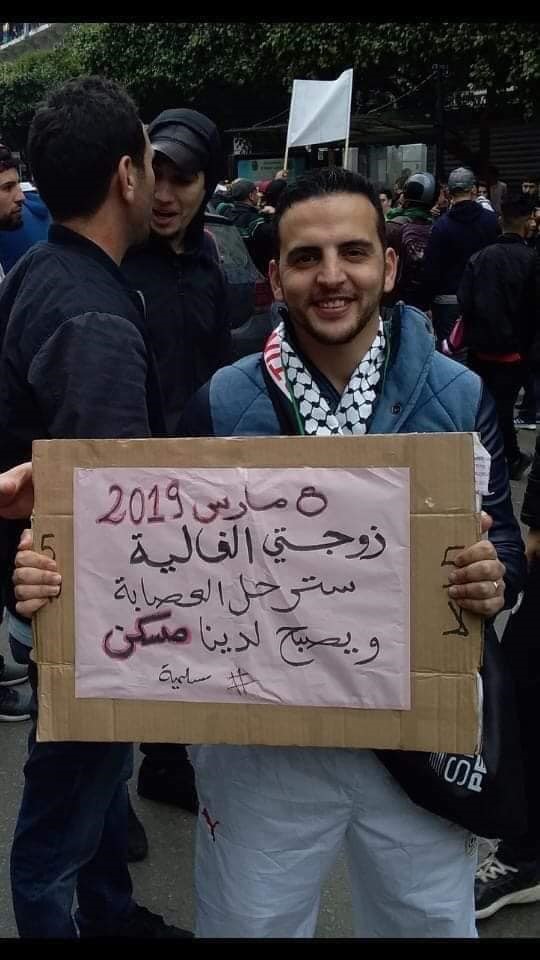 8 مارس 2019
زوجتي الغالية
سترحل العصابة
ويصبح لدينا مسكن
# سلمية